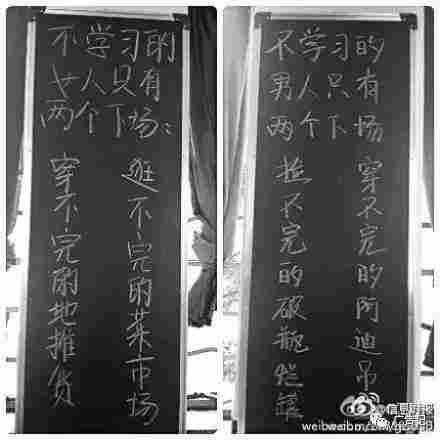 不学习的
女人只有
两个下场:
逛不完的菜市场
穿不完的地摊货
不学习的
男人只有
两个下场
穿不完的阿迪吊
捡不完的破瓶烂罐